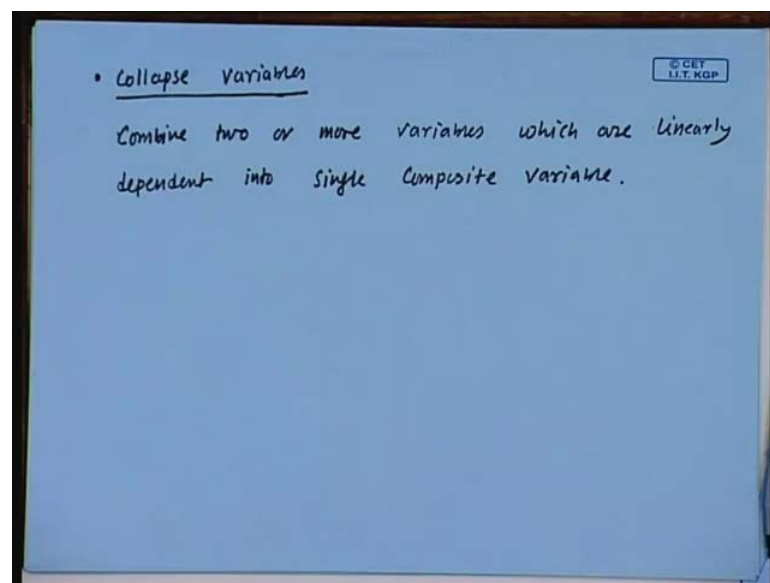 • Collapse Variables
© CET
I.I.T. KGP
Combine two or more variables which are linearly
dependent into single composite variable.